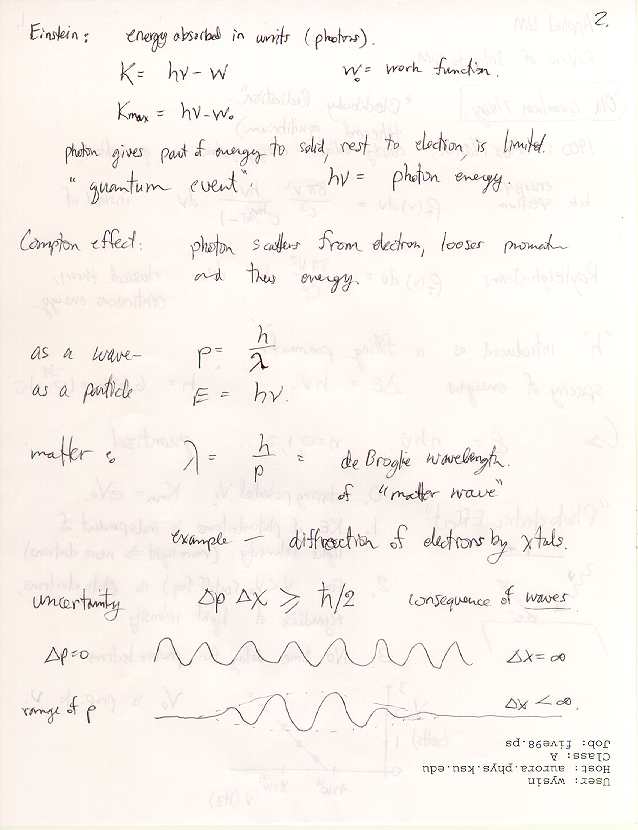 2.
Einstein: energy absorbed in units (photons).
K = hν − W   W₀ = work function.
Kmax = hν − W₀
photon gives part of energy to solid, rest to electron, is limited.
"quantum event"   hν = photon energy.
Compton effect: photon scatters from electron, looses momentum
and thus energy.
as a wave– p = h/λ
as a particle E = hν.
matter: λ = h/p = de Broglie wavelength.
of "matter wave"
example — diffraction of electrons by xtals.
uncertainty Δp Δx ⩾ ħ/2 consequence of waves
Δp=0 Δx = ∞
range of p Δx < ∞.
User: wysin
Host: aurora.phys.ksu.edu
Class: A
Job: five98.ps